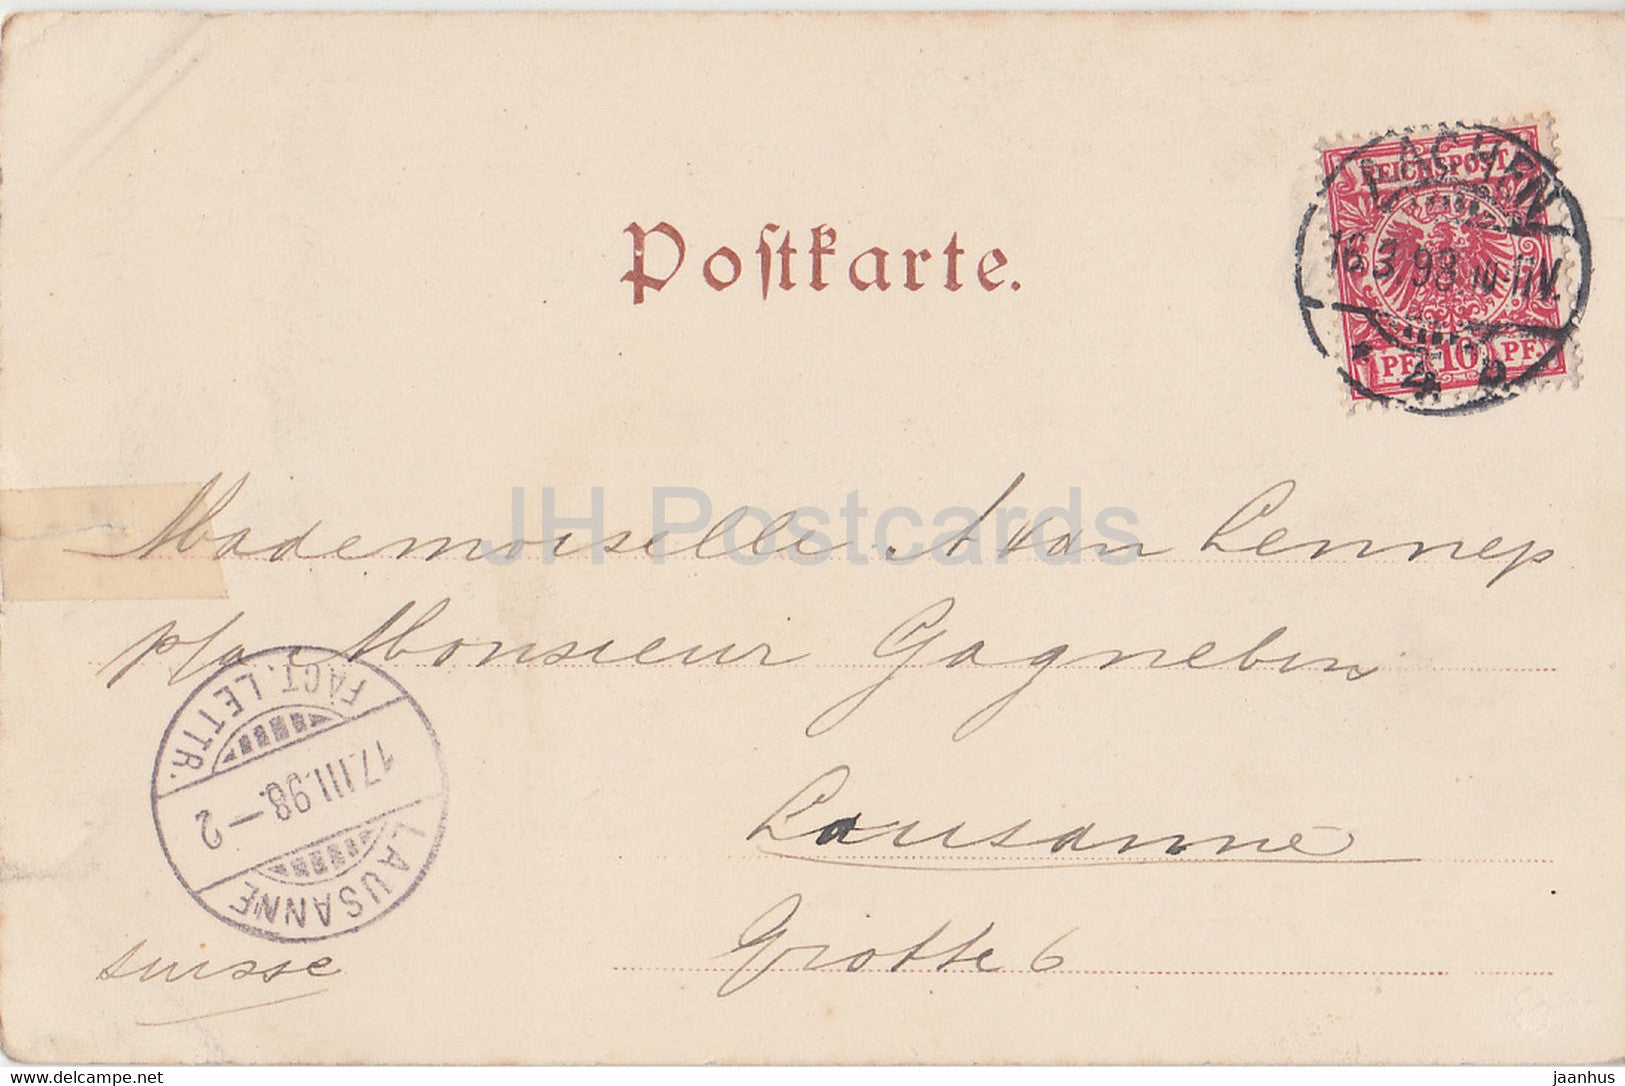 Postkarte.
AACHEN
16.3.98. 10-11V.
* 4 b.
REICHSPOST
PF. 10 PF.
JH Postcards
Mademoiselle A Van Lennep
p/a Monsieur Gagnebin
FACT. LETTR.
17.III.98.—2
LAUSANNE
Lausanne
Grotte 6
Suisse
delcampe.net
jaanhus